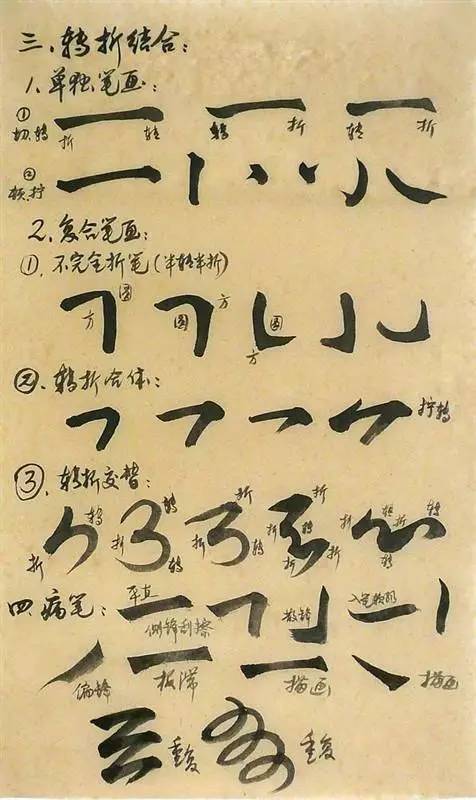 三、转折结合：
1.单独笔画：
①切、转 折 转 转 折 转 折
②顿、拧
2.复合笔画：
①.不完全折笔(半转半折)
方 圆 圆 方 方 圆
②.转折合体：
拧转
③.转折交替：
折 转 折 转 转 折 折 转 折 折 转 折 折 折 转 折 转 转
四.病笔：
平直 侧锋刮擦 散锋 入笔顿
偏锋 板滞 描画 描画
重复 重复